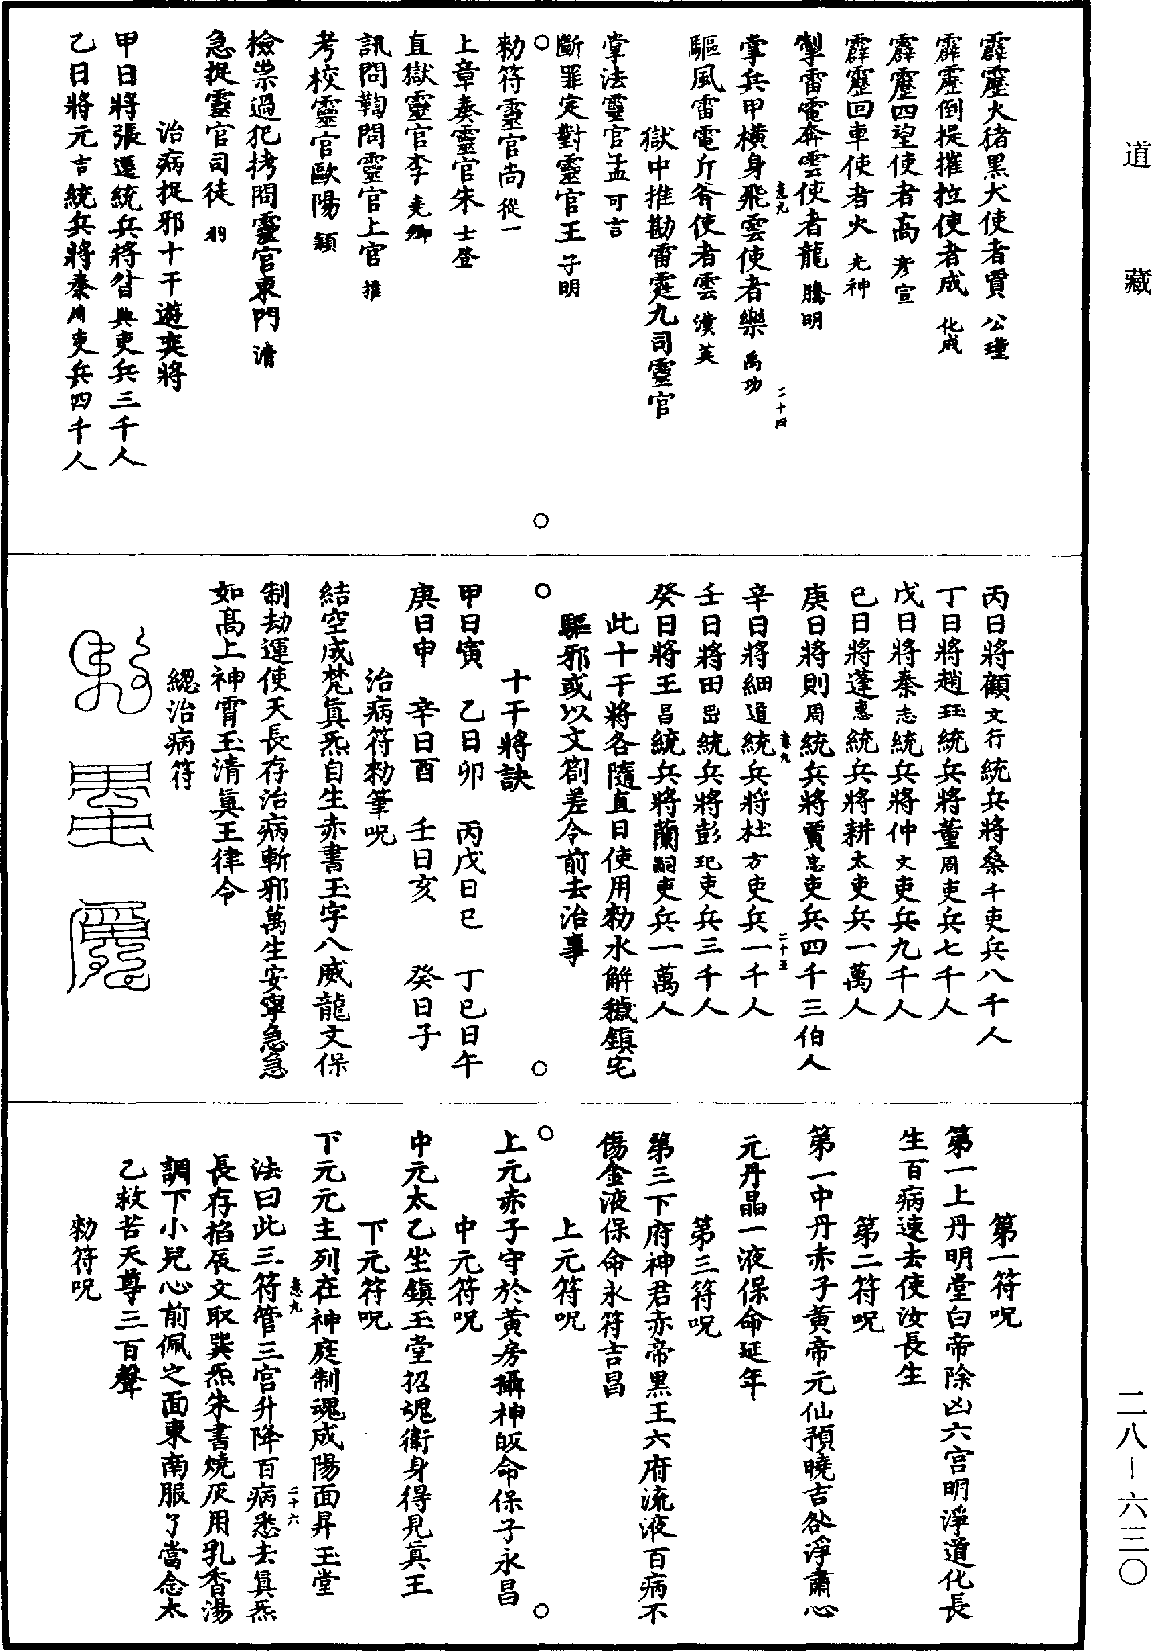 道藏
霹靂火猪黑犬使者賈公瓊
霹靂倒提摧拉使者成化成
霹靂四望使者高彥宣
霹靂回車使者火光神
掣雷電奔雲使者龍騰明
掌兵甲橫身飛雲使者樂禹功
二十四
驅風雷電斤斧使者雲漢英
獄中推勘雷霆九司靈官
掌法靈官孟可言
斷罪定對靈官王子明
勑符靈官尚從一
上章奏靈官朱士登
直獄靈官李堯卿
訊問鞫問靈官上官推
考校靈官歐陽穎
檢祟過犯拷問靈官東門清
急捉靈官司徒
治病捉邪十干遊奕將
甲日將張遷統兵將昝興吏兵三千人
乙日將元吉統兵將秦用吏兵四千人
丙日將顧文行統兵將桑千吏兵八千人
丁日將趙珏統兵將董周吏兵七千人
戊日將秦志統兵將仲文吏兵九千人
己日將蓬惠統兵將耕太吏兵一萬人
庚日將則周統兵將賈忠吏兵四千三伯人
二十五
辛日將細道統兵將杜方吏兵一千人
壬日將田묘統兵將彭玘吏兵三千人
癸日將王昌統兵將蘭嗣吏兵一萬人
此十干將各隨直日使用勑水解穢鎮宅
驅邪或以文劄差令前去治事
十干將訣
甲日寅　乙日卯　丙戊日巳　丁巳日午
庚日申　辛日酉　壬日亥　癸日子
治病符勑筆呪
結空成梵眞炁自生赤書玉字八威龍文保
制劫運使天長存治病斬邪萬生安寧急急
如高上神霄玉清眞王律令
總治病符
第一符呪
第一上丹明堂白帝除凶六宮明淨道化長
生百病速去使汝長生
第二符呪
第一中丹赤子黃帝元仙預曉吉谷淨肅心
元丹晶一液保命延年
第三符呪
第三下府神君赤帝黑王六府流液百病不
傷金液保命永符吉昌
上元符呪
上元赤子守於黃房攝神皈命保子永昌
中元符呪
中元太乙坐鎮玉堂招魂衛身得見眞王
下元符呪
下元元主列在神庭制魂成陽面昇玉堂
二十六
法曰此三符管三官升降百病悉去眞炁
長存掐辰文取巽炁朱書燒灰用乳香湯
調下小兒心前佩之面東南服了當念太
乙救苦天尊三百聲
勑符呪
二八-六三〇